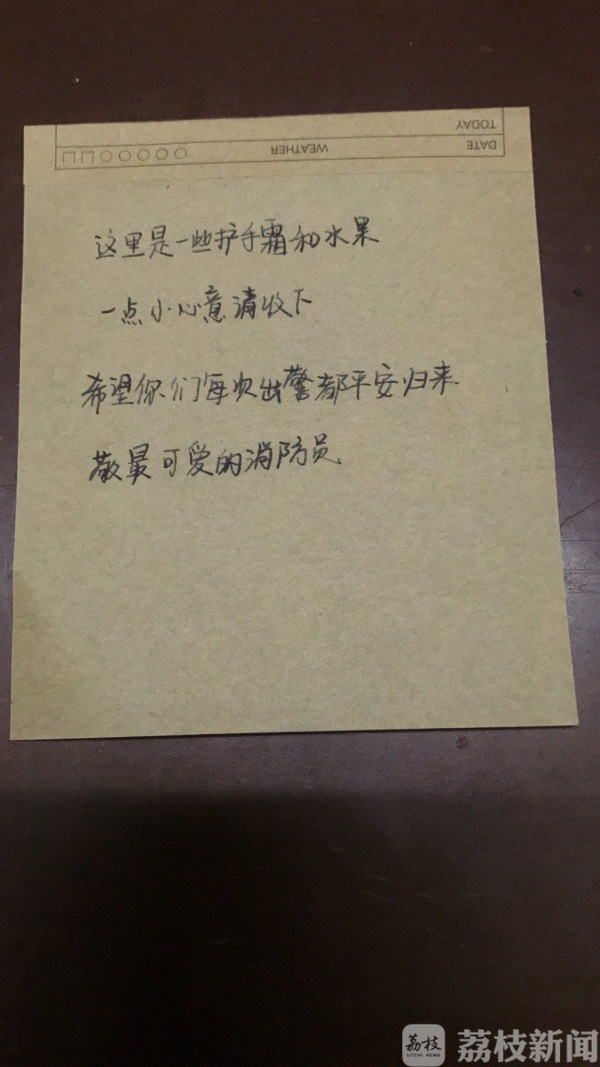 TODAY
DATE WEATHER
这里是一些护手霜和水果
一点小心意请收下
希望你们每次出警都平安归来
敬最可爱的消防员
荔枝 荔枝新闻
LITCHI NEWS